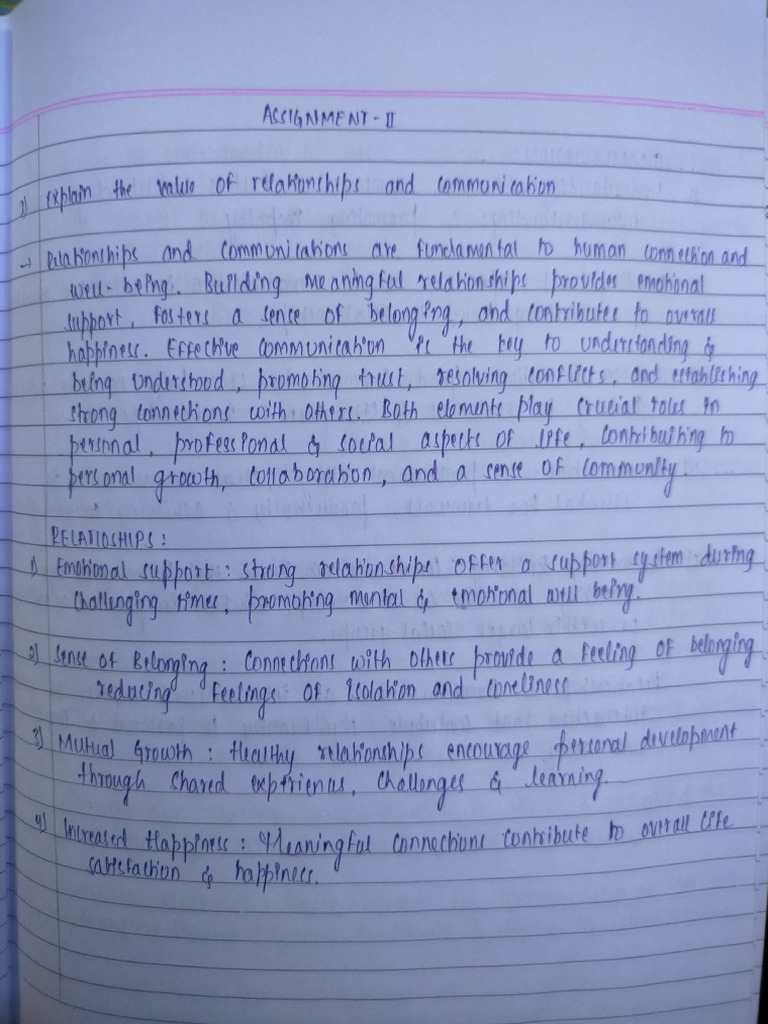 ASSIGNMENT - II
1) Explain the value of relationships and communication
→ Relationships and communications are fundamental to human connection and
well-being. Building meaningful relationships provides emotional
support, fosters a sense of belonging, and contributes to overall
happiness. Effective communication is the key to understanding &
being understood, promoting trust, resolving conflicts, and establishing
strong connections with others. Both elements play crucial roles in
personal, professional & social aspects of life, contributing to
personal growth, collaboration, and a sense of community.
RELATIOSHIPS :
1) Emotional support : strong relationships offer a support system during
challenging times, promoting mental & emotional well being.
2) Sense of Belonging : Connections with others provide a feeling of belonging
reducing feelings of isolation and loneliness
3) Mutual Growth : Healthy relationships encourage personal development
through shared experiences, challenges & learning.
4) Increased Happiness : Meaningful connections contribute to overall life
satisfaction & happiness.